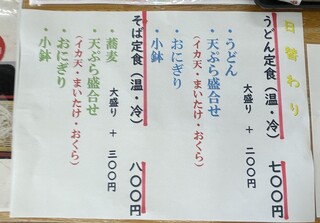 日替わり
うどん定食（温・冷） 七〇〇円
大盛り ＋ 二〇〇円
・うどん
・天ぷら盛合せ
（イカ天・まいたけ・おくら）
・おにぎり
・小鉢
そば定食（温・冷） 八〇〇円
大盛り ＋ 三〇〇円
・蕎麦
・天ぷら盛合せ
（イカ天・まいたけ・おくら）
・おにぎり
・小鉢